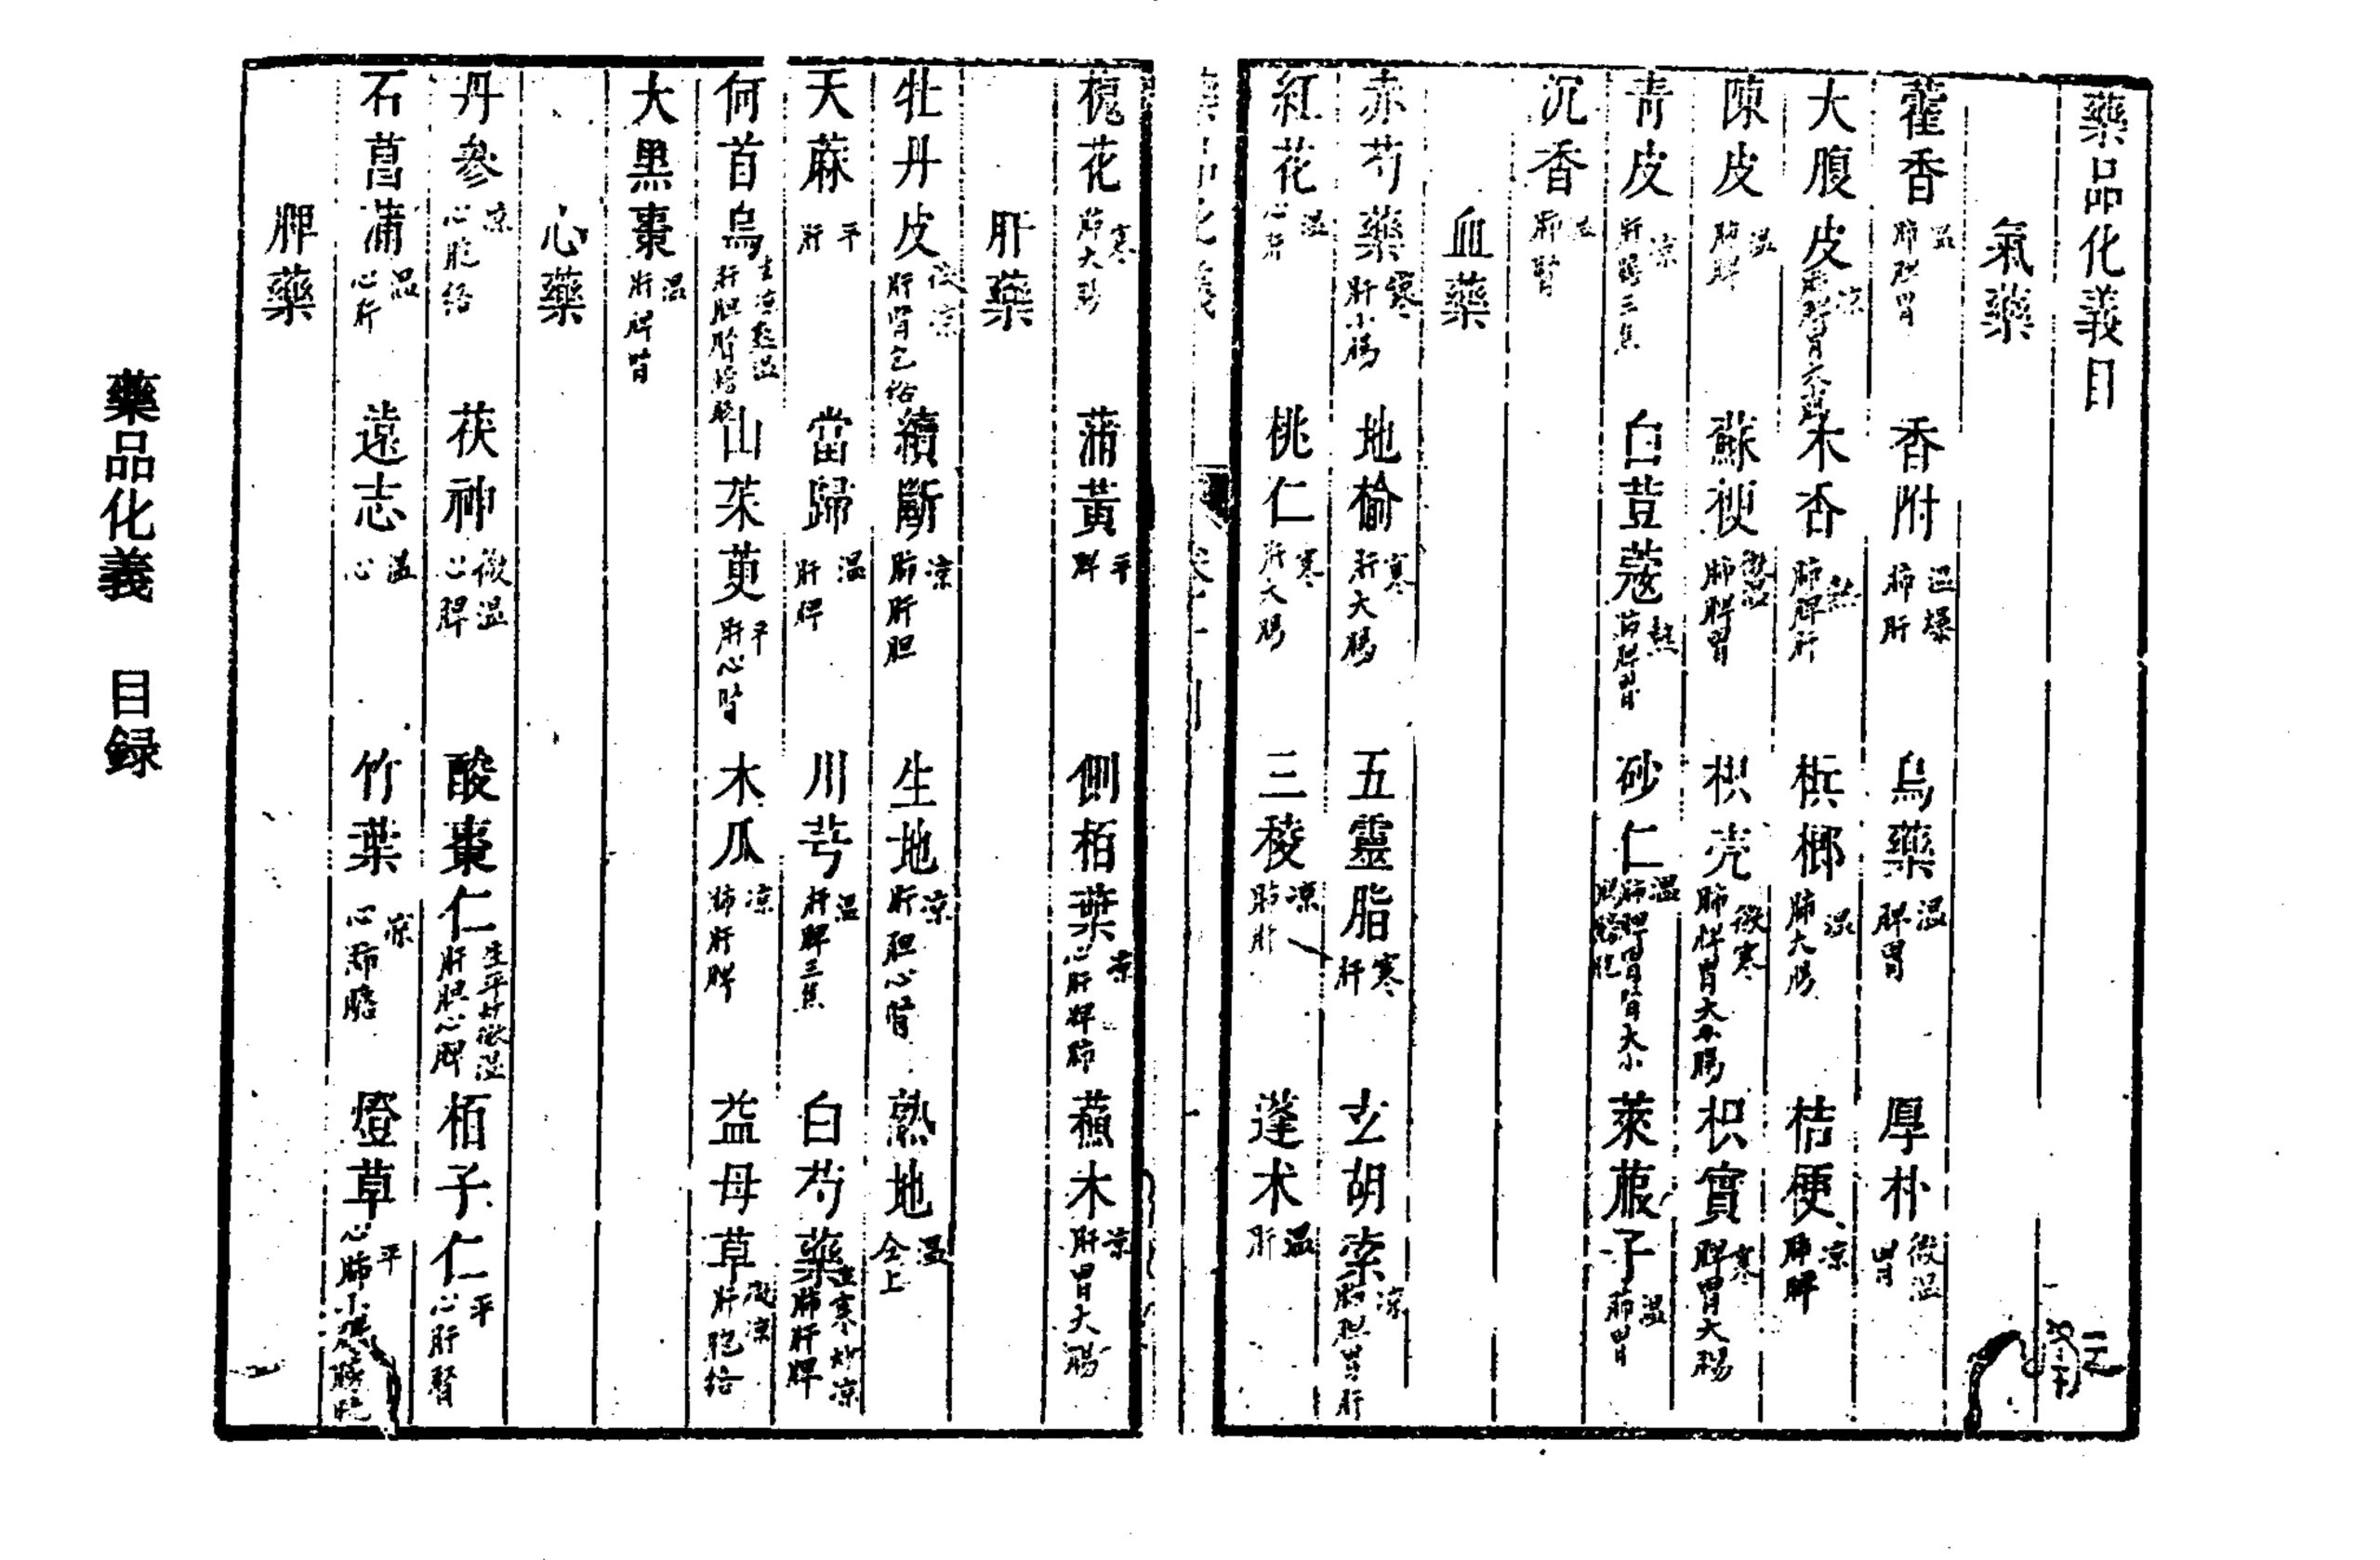 藥品化義目
氣藥
藿香 温 肺脾胃 香附 温燥 肺肝 烏藥 温 脾胃 厚朴 微温 胃
大腹皮 凉 木香 熱 肺脾肝 檳榔 温 肺大腸 桔梗 凉 肺脾
陳皮 温 肺脾 蘇梗 肺脾胃 枳壳 微寒 肺脾胃大小腸 枳實 寒 脾胃大腸
青皮 凉 肝膽三焦 白荳蔻 熱 肺脾胃 砂仁 温 肺脾胃腎大小 萊菔子 温 肺胃
沉香 温 肺腎
血藥
赤芍藥 寒 肝小腸 地榆 寒 肝大腸 五靈脂 寒 肝 玄胡索 凉
紅花 温 心肝 桃仁 寒 肝大腸 三稜 凉 肺肝 蓬朮 温 肝
槐花 寒 肺大腸 蒲黃 平 脾 側栢葉 凉 心肝脾肺 蘇木 凉 肝胃大腸
肝藥
牡丹皮 微凉 肝腎包絡 續斷 凉 肺肝胆 生地 凉 肝胆心腎 熟地 温 仝上
天蔴 平 肝 當歸 温 肝脾 川芎 温 肝脾三焦 白芍藥 生寒炒凉 肺肝脾
何首烏 生凉熟温 山茱萸 平 肝心腎 木瓜 凉 肺肝脾 益母草 微凉 肝胞絡
大黑棗 温 肝脾腎
心藥
丹參 凉 心胞絡 茯神 微温 心脾 酸棗仁 生平炒微温 肝胆心脾 栢子仁 平 心肝腎
石菖蒲 温 心肝 遠志 温 心 竹葉 凉 心肺膽 燈草 平
脾藥
藥品化義 目録